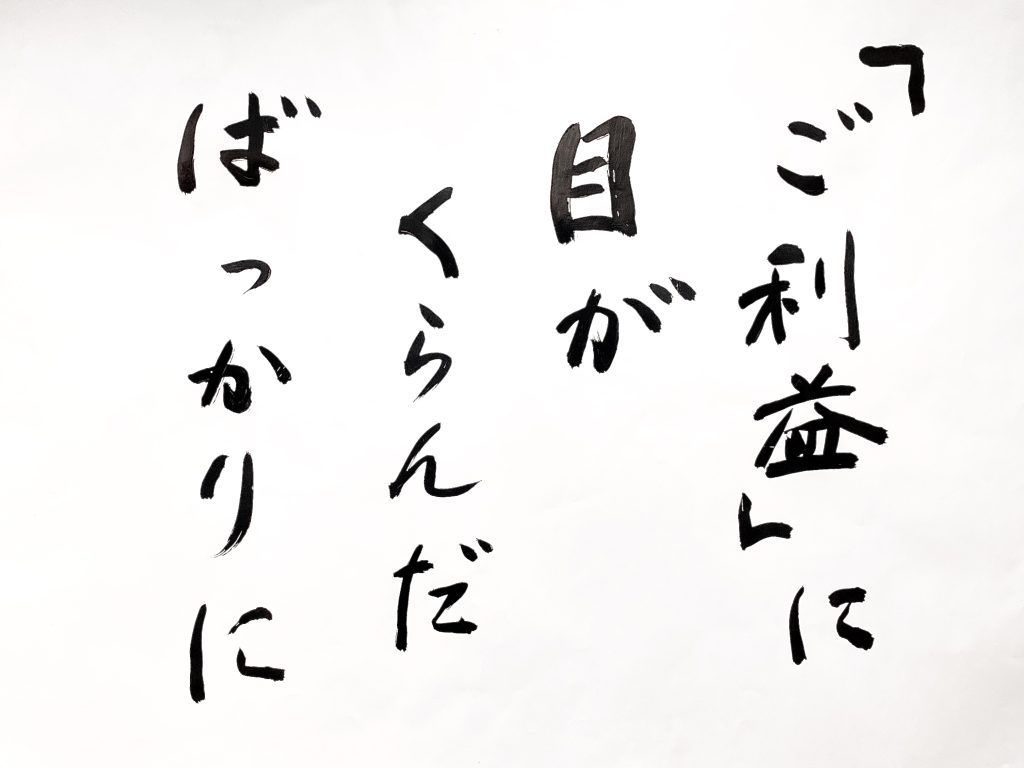 「ご利益」に
目が
くらんだ
ばっかりに